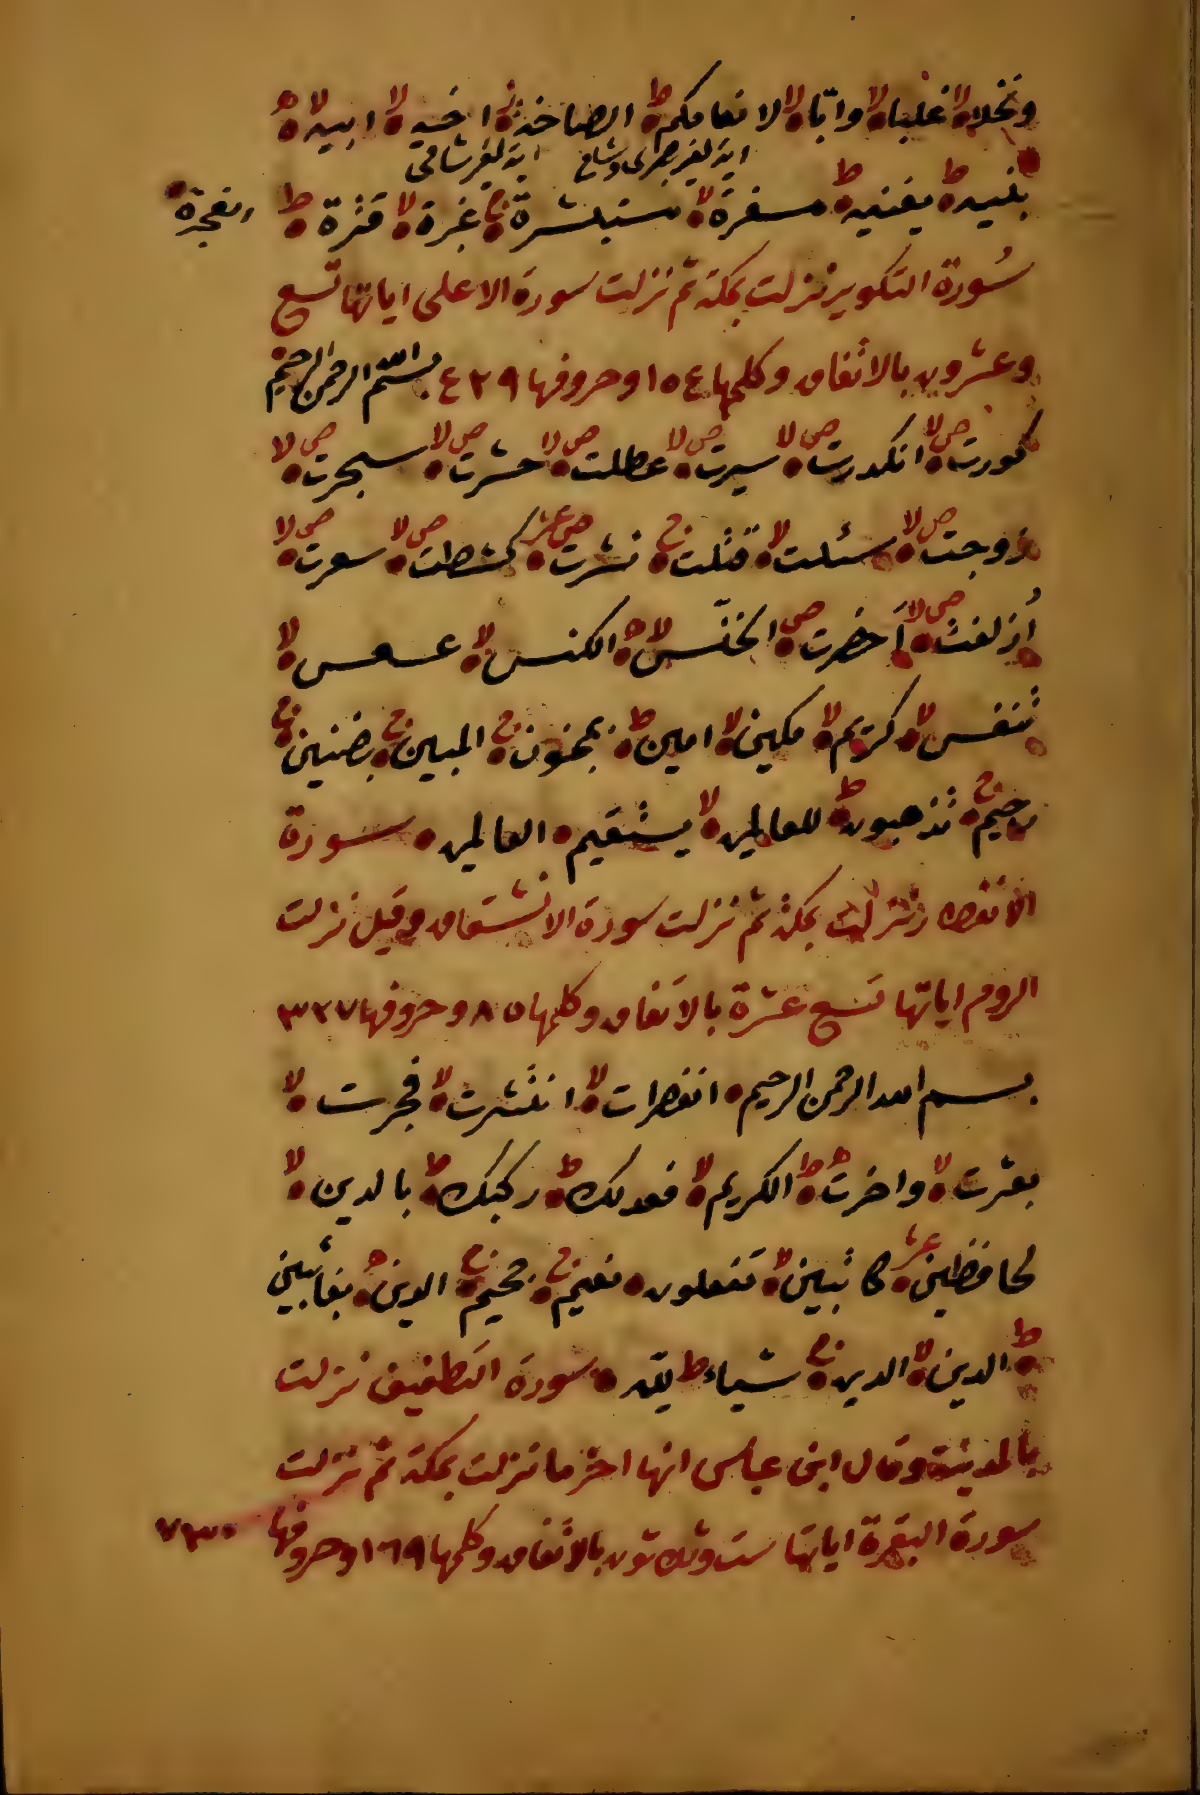 ونخلا لا غلبا لا وابّا لا لانعامكم ط الصاخة ز اخيه لا ابيه لا ه
اية لغير شامى
بنيه ط يغنيه ط مسفرة لا مستبشرة ج غبرة لا قترة ط الفجرة
سُورة التكوير نزلت بمكة ثم نزلت سورة الاعلى اياتها تسع
وعشرون بالاتفاق وكلمها ١٥٤ وحروفها ٤٢٩ بسم الله الرحمن الرحيم
كورت ص لا انكدرت ص لا سيرت ص لا عطلت ص لا حشرت ص لا سجرت ص لا
زوجت ص لا سئلت لا قتلت ج نشرت ص عشر كشطت ص لا سعرت ص لا
اُزلفت ص لا اَحضرت ص الخنّس لا ه الكنس لا عسعس لا
تنفس لا كريم لا مكين لا امين ط بمجنون ج المبين ج بضنين ج
رجيم ج تذهبون ط للعالمين لا يستقيم العالمين سورة
الانفطار نزلت بمكة ثم نزلت سورة الانشقاق وقيل نزلت
الروم اياتها تسع عشرة بالاتفاق وكلمها ٨٥ وحروفها ٣٢٧
بسم الله الرحمن الرحيم انفطرات لا انتثرت لا فجرت لا
بعثرت لا واخرت ط ه الكريم لا فعدلك ط ركبك ط بالدين لا
لحافظين عشر كاتبين لا تفعلون نعيم ج جحيم ج الدين ه بغائبين
ط الدين لا الدين ج شياء ط لله سورة التطفيف نزلت
بالمدينة وقال ابن عباس انها اخر ما نزلت بمكة ثم نزلت
سورة البقرة اياتها ست وثلاثون بالاتفاق وكلمها ١٦٩ وحروفها ٧٣٠